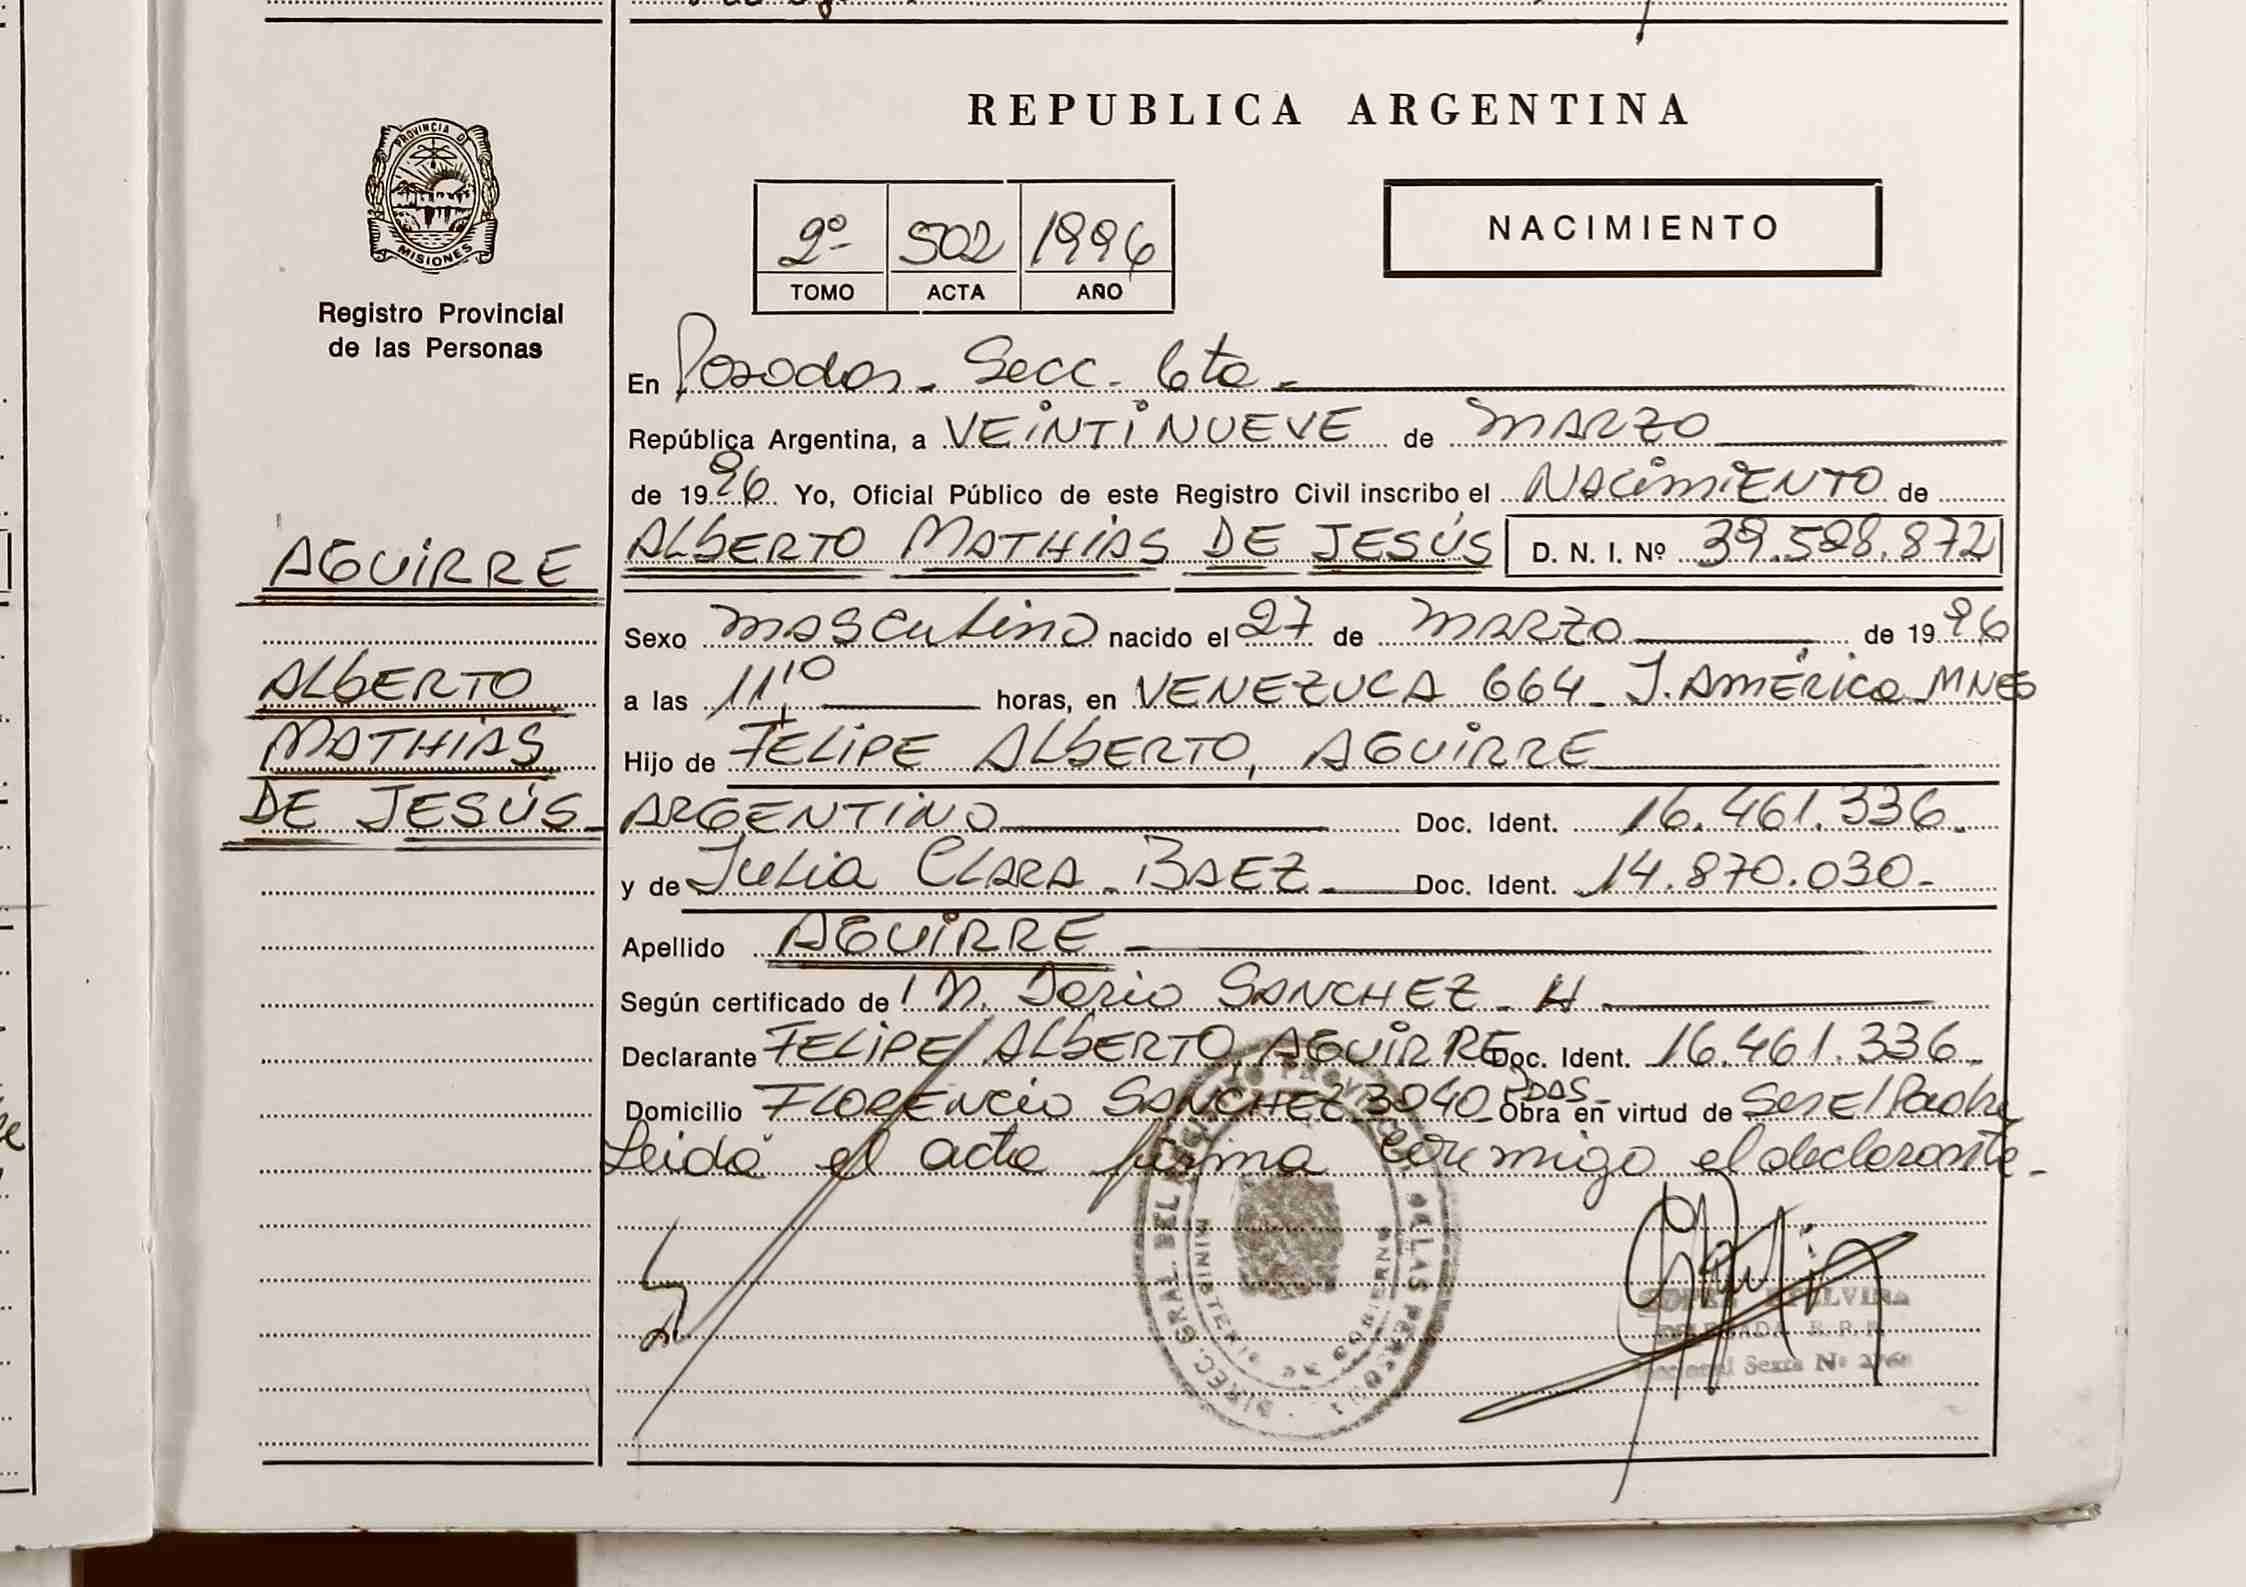 REPUBLICA ARGENTINA
PROVINCIA DE
MISIONES
Registro Provincial
de las Personas
2º 502 1996
TOMO ACTA AÑO
NACIMIENTO
En Posadas - Secc. 6ta -
República Argentina, a VEINTINUEVE de MARZO
de 1996 Yo, Oficial Público de este Registro Civil inscribo el NACIMIENTO de
AGUIRRE
ALBERTO MATHIAS DE JESÚS D. N. I. Nº 39.528.872
Sexo masculino nacido el 27 de MARZO de 1996
ALBERTO
a las 11'10 horas, en VENEZUELA 664 - J. América MNES
MATHIAS
Hijo de FELIPE ALBERTO, AGUIRRE
DE JESÚS
ARGENTINO Doc. Ident. 16.461.336.
y de Julia CLARA BAEZ - Doc. Ident. 14.870.030-
Apellido AGUIRRE -
Según certificado de SANCHEZ - H
Declarante FELIPE ALBERTO AGUIRRE Doc. Ident. 16.461.336-
Domicilio FLORENCIO SANCHEZ 3040 PDAS - Obra en virtud de Ser E/Padre
Leida el acta firma conmigo el declarante -
DIREC. GRAL. DEL REGISTRO PROVINCIAL DE LAS PERSONAS
MINISTERIO DE GOBIERNO
DELEGADA R. P. P.
Sexta Nº